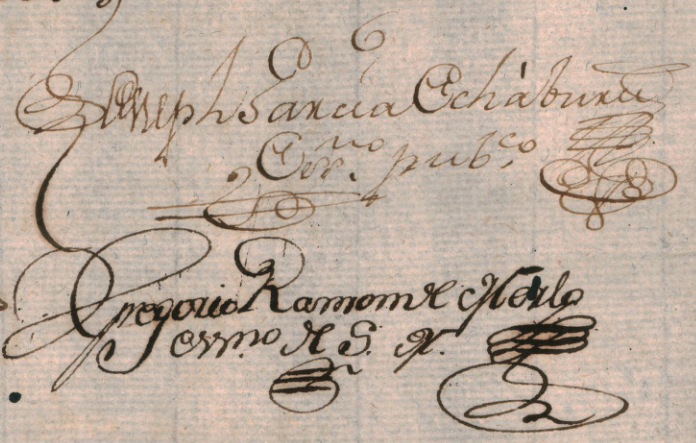 Joseph Garcia Echaburu
Esc.no pub.co
Gregorio Ramon de Merlo
esn.no de S. M.